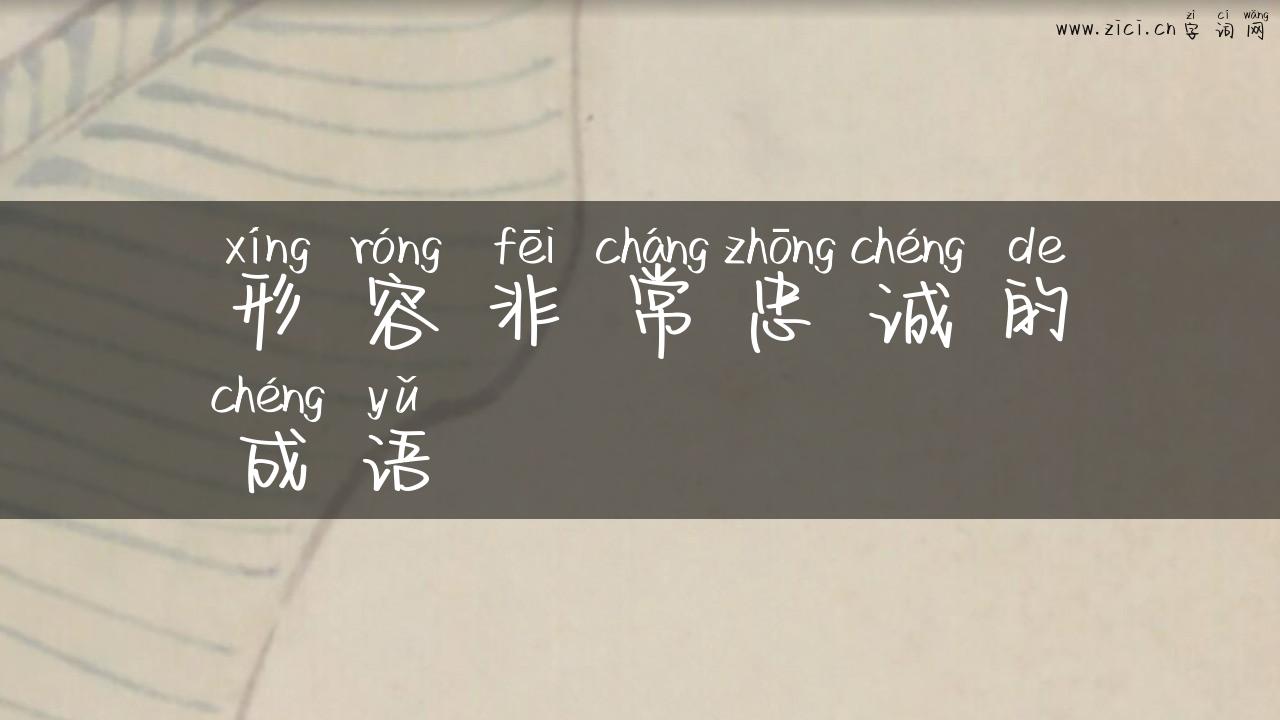 zì cí wǎng
www.zici.cn 字词网
xíng róng fēi cháng zhōng chéng de
形容非常忠诚的
chéng yǔ
成语